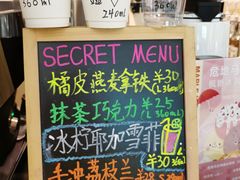 360ml
240ml
SECRET MENU
橘皮燕麦拿铁 ¥30
(360ml)
抹茶巧克力 ¥25
(360ml)
冰柠耶加雪菲
¥30 360ml
手冲荔枝兰